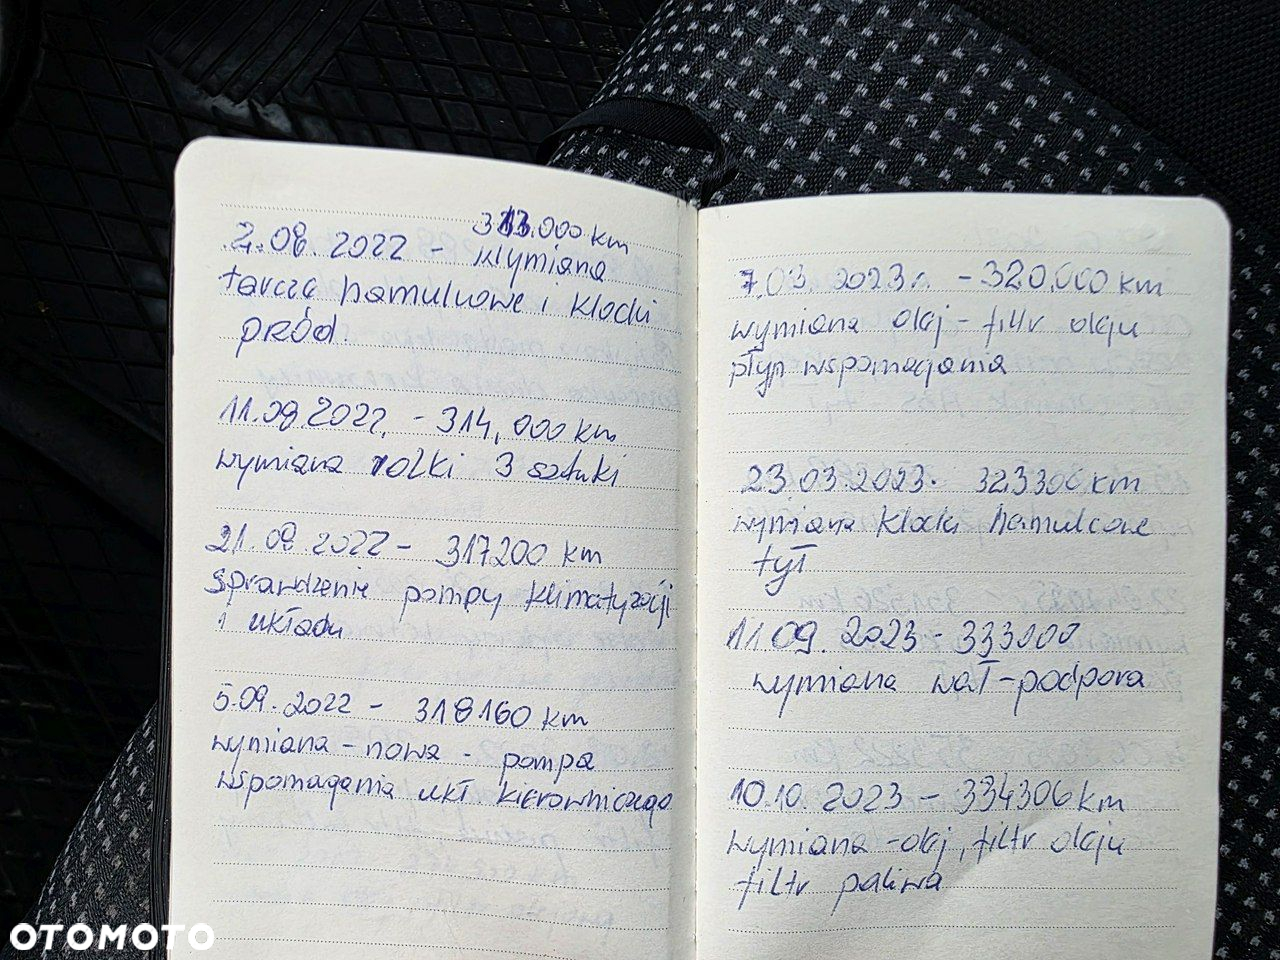 313.000 km
2.08.2022 - Wymiana
tarczę hamulcowe i klocki
przód.
11.08.2022. - 314,000 km
wymiana rolki 3 sztuki
21.08.2022 - 317200 km
sprawdzenie pompy klimatyzacji
i układu
5.09.2022 - 318160 km
wymiana - nowa - pompa
wspomagania ukł. kierowniczego
7.03.2023r. - 320.000 km
wymiana olej - filtr oleju
płyn wspomagania
23.03.2023. 323300 km
wymiana klocki hamulcowe
tył
11.09.2023 - 333000
wymiana wał - podpora
10.10.2023 - 334306 km
wymiana - olej, filtr oleju
filtr paliwa
OTOMOTO